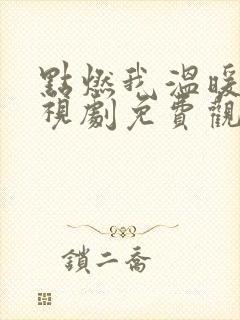 點燃我溫暖
視劇免費觀
鎖二喬